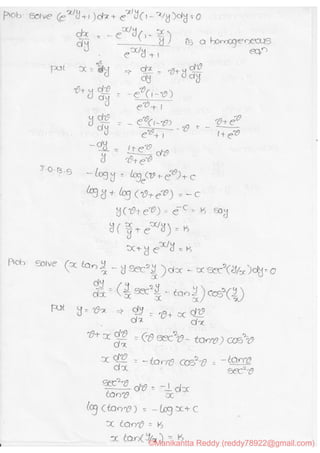 Prob: solve (e^{x/y}+1)dx + e^{x/y}(1-x/y)dy=0
dx/dy = -e^{x/y}(1-x/y)/(e^{x/y}+1) is a homogeneous eqn
put x=vy ⇒ dx/dy = v+y dv/dy
v+y dv/dy = -e^v(1-v)/(e^v+1)
y dv/dy = -e^v(1-v)/(e^v+1) - v = -(v+e^v)/(1+e^v)
-dy/y = (1+e^v)/(v+e^v) dv
I.O.B.S -log y = log_e(v+e^v)+c
log y + log(v+e^v) = -c
y(v+e^v) = e^{-c} = K say
y(x/y + e^{x/y}) = K
x+y e^{x/y} = K
Prob: solve (x tan y/x - y sec² y/x)dx - x sec²(y/x)dy=0
dy/dx = (y/x sec² y/x - tan y/x) cos²(y/x)
put y=vx ⇒ dy/dx = v+x dv/dx
v+x dv/dx = (v sec²v - tanv) cos²v
x dv/dx = -tanv cos²v = -tanv/sec²v
sec²v/tanv dv = -1/x dx
log(tanv) = -log x+c
x tanv = K
x tan(y/x) = K
©Manikantta Reddy (reddy78922@gmail.com)